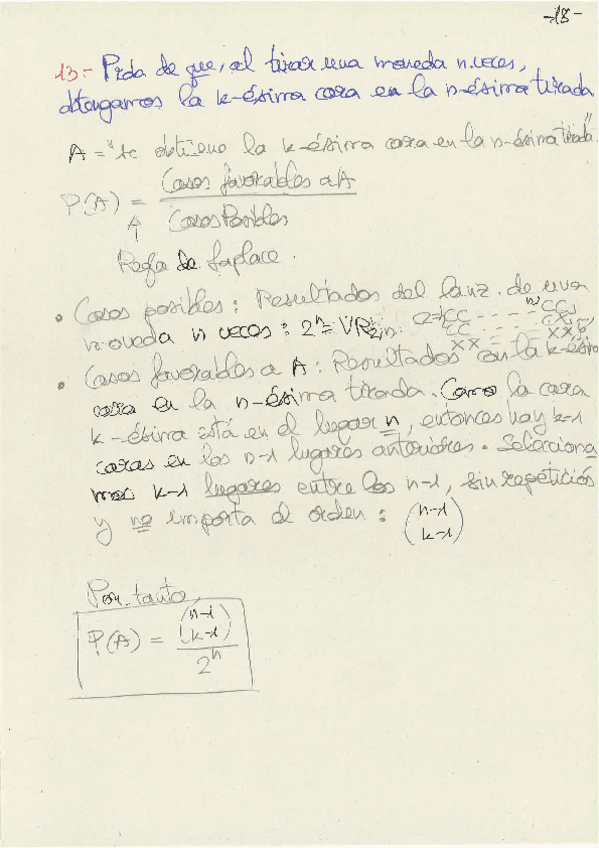 -18-
13.- Prda de que, al tirar una moneda n veces,
obtengamos la k-ésima cara en la n-ésima tirada
A = "se obtiene la k-ésima cara en la n-ésima tirada"
P(A) = Casos favorables a A / Casos Posibles
Regla de Laplace.
• Casos posibles: Resultados del lanz. de una
moneda n veces: 2^n = VR2,n.
• Casos favorables a A: Resultados con la k-ésima
cara en la n-ésima tirada. Como la cara
k-ésima está en el lugar n, entonces hay k-1
caras en los n-1 lugares anteriores. Selecciona
mos k-1 lugares entre los n-1, sin repetición
y no importa el orden: (n-1 k-1)
Por tanto,
P(A) = (n-1 k-1) / 2^n